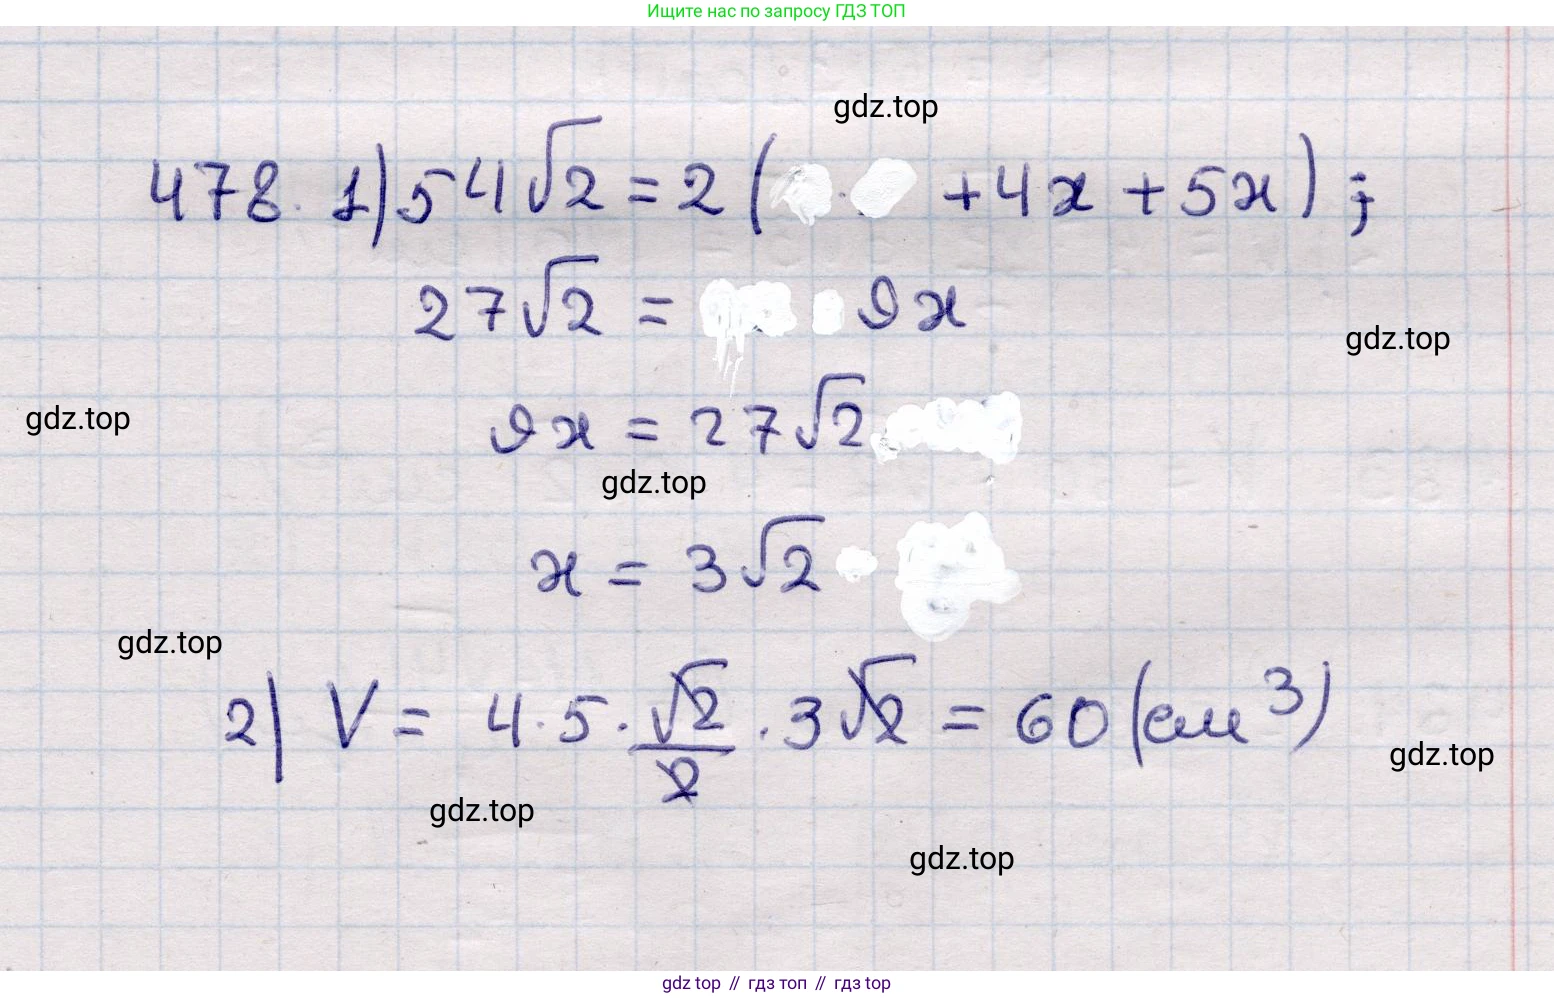 Ищите нас по запросу ГДЗ ТОП
gdz.top
478. 1) 54√2 = 2 ( + 4x + 5x ) ;
27√2 = 9x
gdz.top
9x = 27√2
gdz.top
gdz.top
x = 3√2
gdz.top
2) V = 4 · 5 · √2/2 · 3√2 = 60 (см³)
gdz.top
gdz.top
gdz.top
gdz top // гдз топ // гдз top